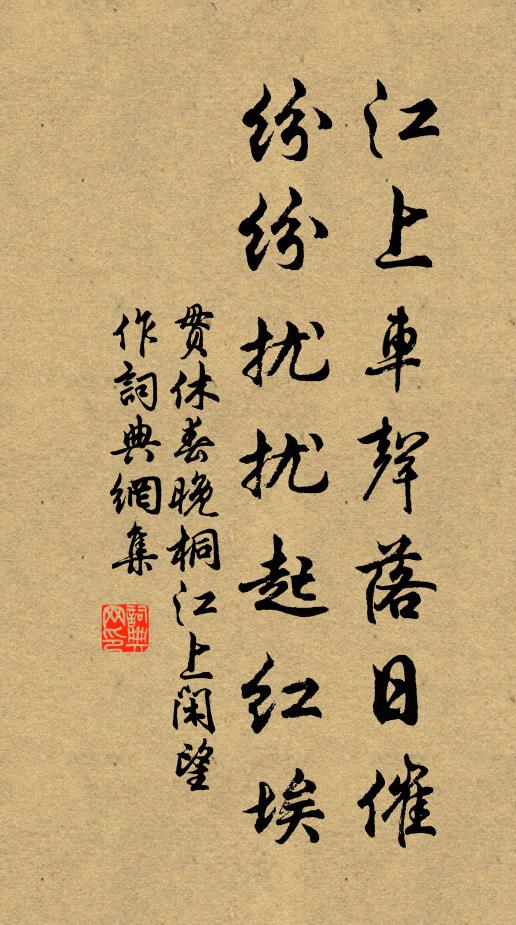 江上車聲落日催
紛紛扰扰起紅埃
貫休春晚桐江上閑望
作詞典網集
詞典網印